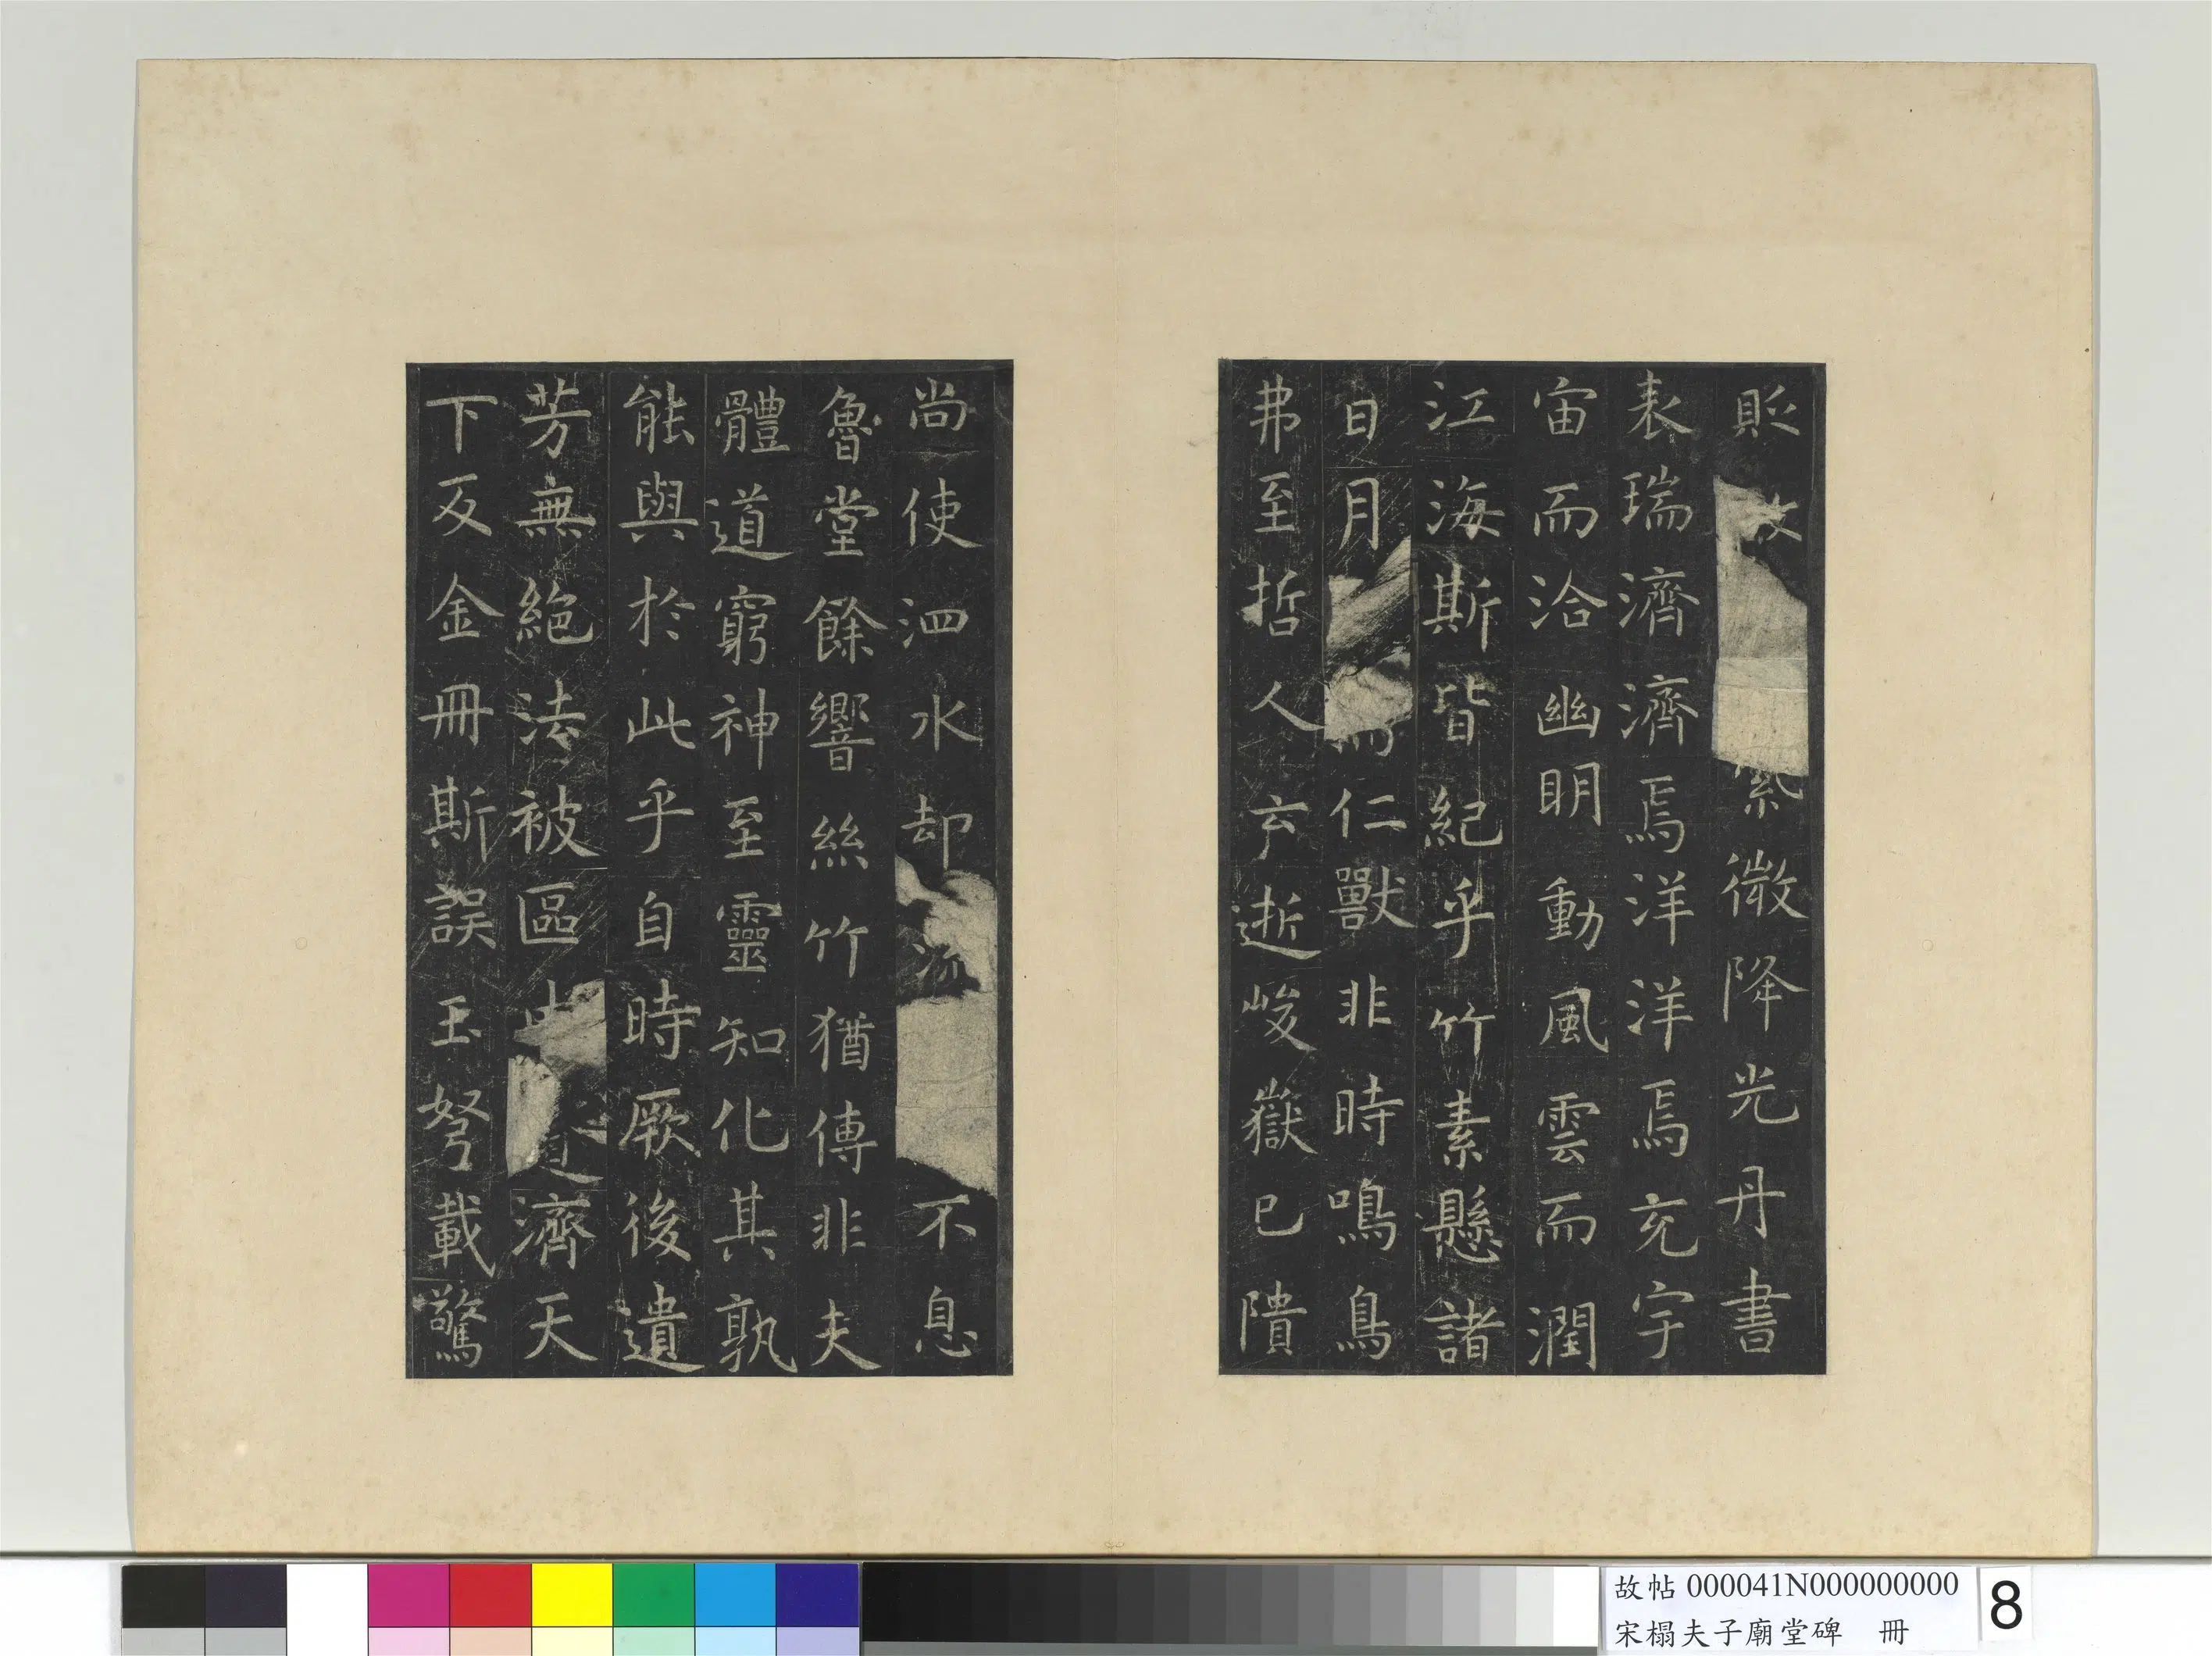 貺紫微降光丹書
表瑞濟濟焉洋洋焉充宇
宙而洽幽明動風雲而潤
江海斯皆紀乎竹素懸諸
日月而仁獸非時鳴鳥
弗至哲人云逝峻嶽已隤
尚使泗水却流不息
魯堂餘響絲竹猶傳非夫
體道窮神至靈知化其孰
能與於此乎自時厥後遺
芳無絕法被區中道濟天
下及金冊斯誤玉弩載驚
故帖 000041N000000000
宋榻夫子廟堂碑 冊
8